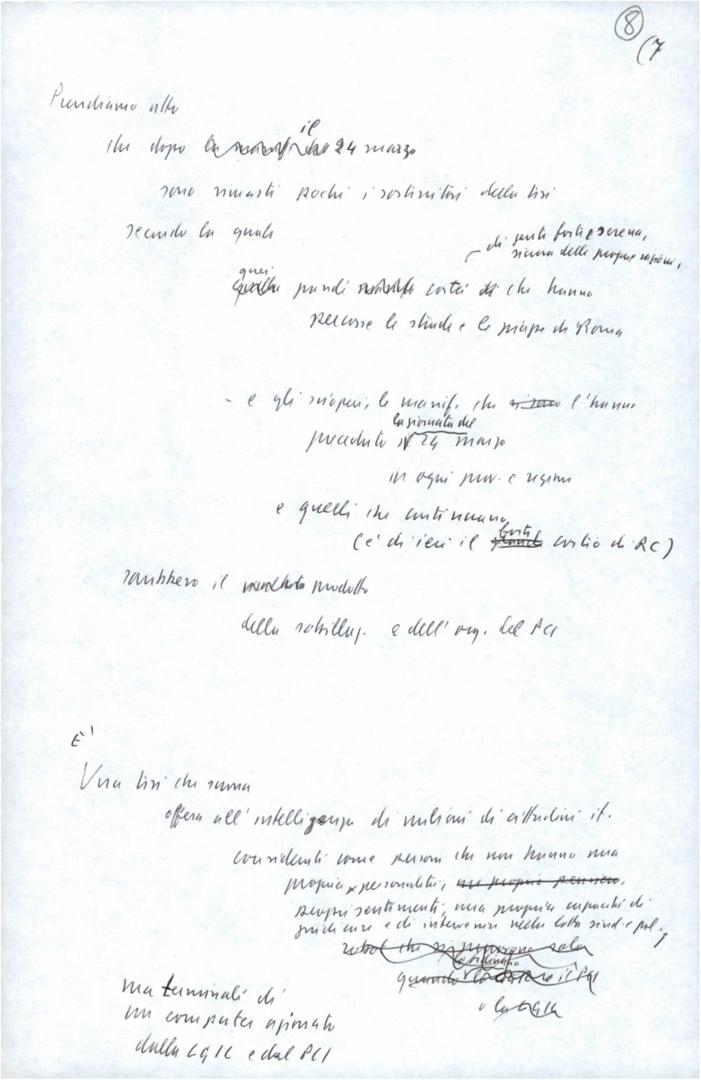 8
(7
Prendiamo atto
che dopo il 24 marzo
sono rimasti pochi i sostenitori della tesi
secondo la quale
di gente forte e serena,
sicura delle proprie ragioni,
quei
grandi cortei che hanno
percorso le strade e le piazze di Roma
- e gli scioperi, le manif. che l'hanno
la giornata del
preceduto 24 marzo
in ogni prov. e regione
e quelli che continuano
forte
(è di ieri il corteo di RC)
sarebbero il prodotto
della sobillaz. e dell'org. del PCI
E'
Una tesi che suona
offesa all'intelligenza di milioni di cittadini it.
considerati come persone che non hanno una
propria personalità, un proprio pensiero,
propri sentimenti, una propria capacità di
giudicare e di intervenire nella lotta sind. e pol.,
robot che si muovono solo
quando il PCI
o la CGIL
ma terminali di
un computer azionato
dalla CGIL e dal PCI